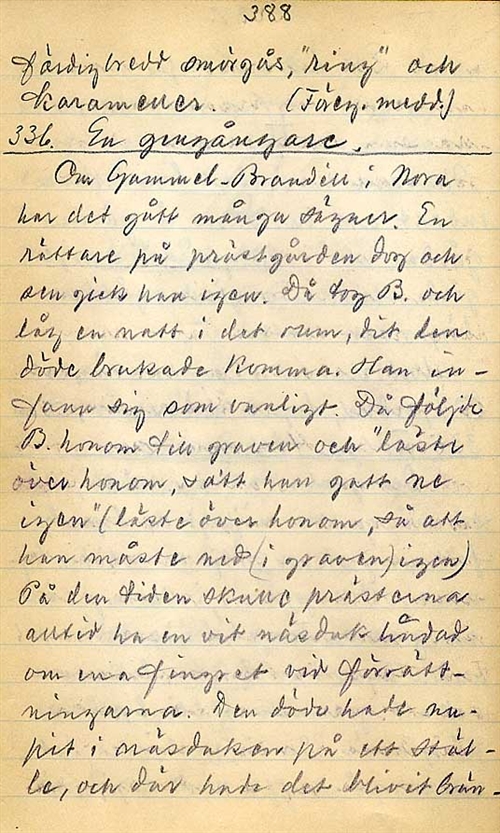 388
färdigbredd smörgås, "ring" och
karameller. (Föreg. medd.)
336. En gengångare.
Om Gammel-Brandell i Nora
har det gått många sägner. En
rättare på prästgården dog och
sen gick han igen. Då tog B. och
låg en natt i det rum, dit den
döde brukade komma. Han in-
fann sig som vanligt. Då följde
B. honom till graven och "läste
över honom, sått han gatt ne
igen" (läste över honom, så att
han måste ned (i graven) igen)
På den tiden skulle prästerna
alltid ha en vit näsduk lindad
om ena fingret vid förrätt-
ningarna. Den döde hade nu-
pit i näsduken på ett stäl-
le, och där hade det blivit brän-